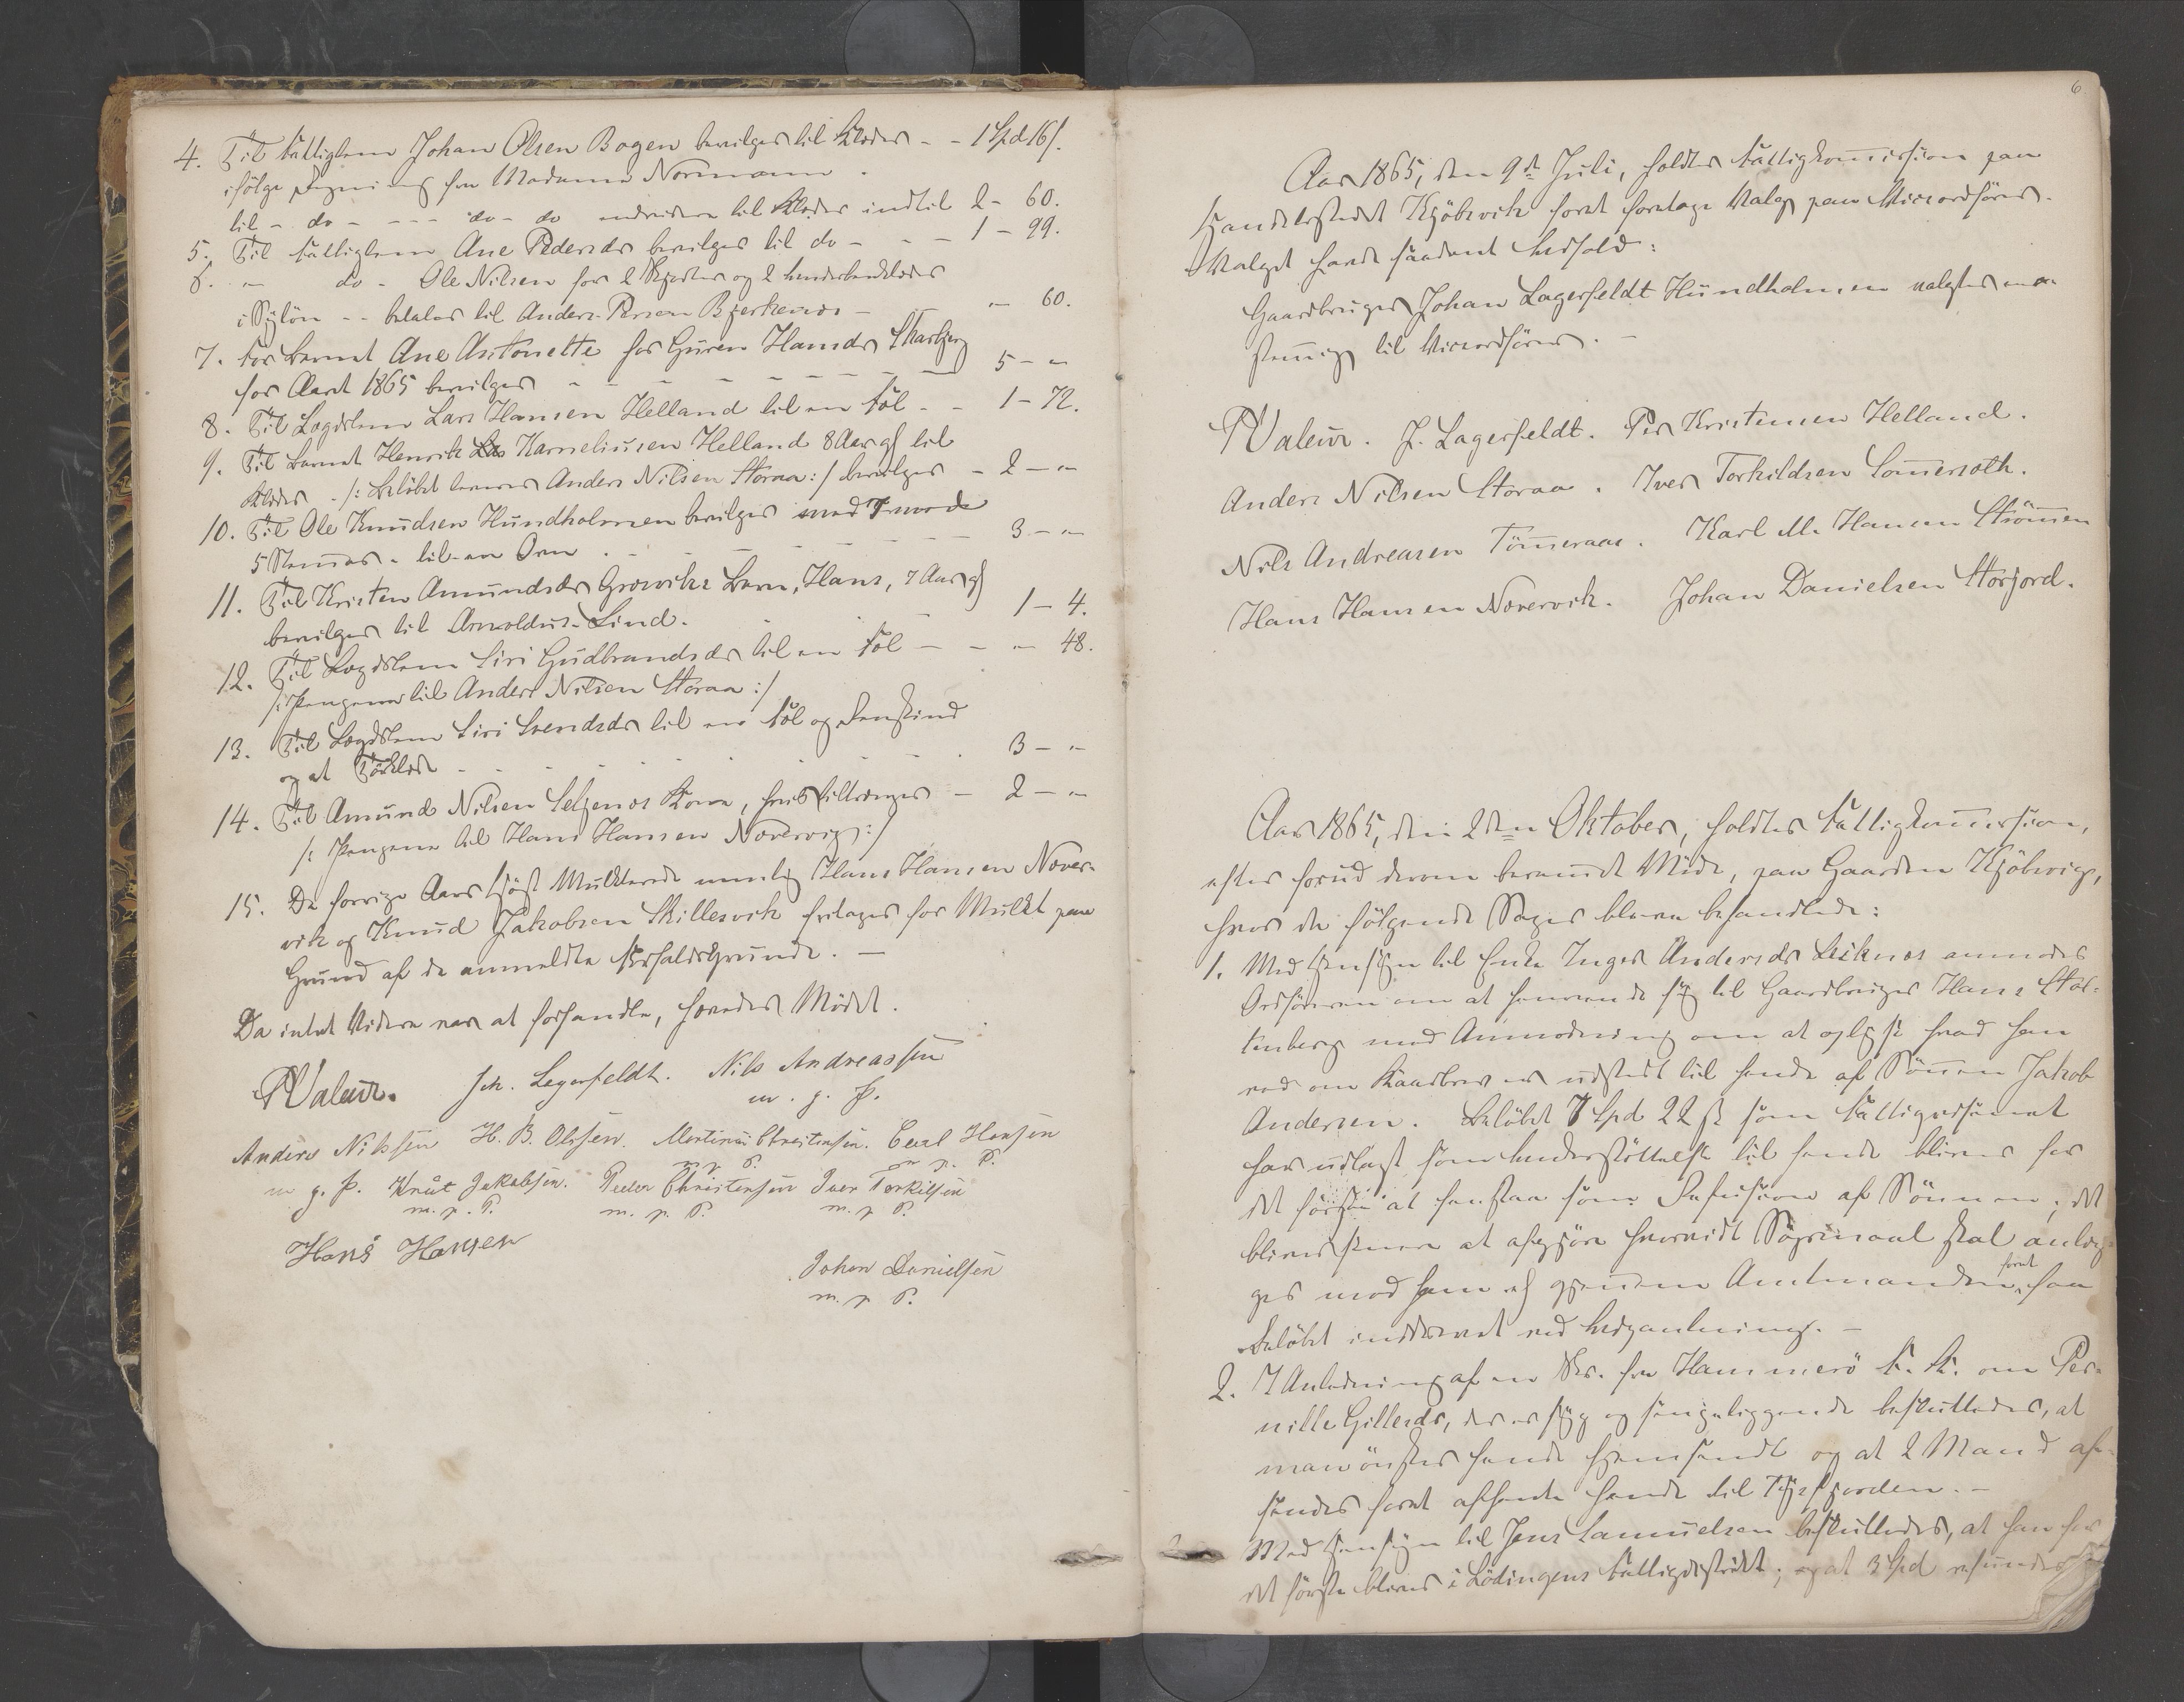 4. Til Fattiglem Johan Olsen Bogen bevilges til Klæder - - 1 Spd 16 s.
ifølge Regning fra Madame Normann.
til - do - - - - do - do endvidere til Klæder indtil 2 - 60.
5. Til Fattiglem Ane Pedersdr bevilges til do - - - 1 - 99.
6. " do - Ole Nilsen for 2 Skjorter og 2 Underbenklæder
i Syløn - - betales til Anders Persen Bjerkenes - " 60.
7. For Barnet Ane Antonette hos Guren Hansdr Skarbjerg
for Aaret 1865 bevilges - - - - - - - 5 - "
8. Til Lægdslem Lars Hansen Helland til en Fæl - - 1 - 72.
9. Til Barnet Henrik Korneliusen Helland 8 Aar gl til
Klæder - /: Beløbet leveres Anders Nilsen Storaa :/ bevilges - 2 - "
10. Til Ole Knudsen Hundholmen bevilges mod
5 Stemmer - til en - - - - - - 3 - "
11. Til Kristen Amundsdr Grovviks Barn, Hans, 7 Aar gl
bevilges til Arnoldus Lind. - - 1 - 4.
12. Til Lægdslem Siri Gudbrandsdr til en Fæl - - " 48.
/: Pengene til Anders Nilsen Storaa :/
13. Til Lægdslem Siri Svendsdr til en Fæl og Senskind
og et Tørklæde - - - - - - - 3 - "
14. Til Amund Nilsen Seljenes Kone, hvis tiltrænges - 2 - "
/: Pengene til Hans Hansen Nævervig :/
15. De forrige Aars høist Mulkterede nemlig Hans Hansen Næver-
vik og Knud Jakobsen Skillesvik fritages for Mulkt paa
Grund af de anmeldte Forfaldsgrunde. -
Da intet Videre var at forhandle, hævedes Mødet.
PValeur. Joh. Lagerfeldt. Nils Andreassen
m. p. P.
Anders Nilssen H. B. Olssen. Martinus Christensen. Carl Hansen
m. p. P. m. p. P.
m. p. P. Knut Jakobsen. Peder Christensen Iver Torkilsen
m. p. P. m. p. P. m. p. P.
Hans Hansen
Johan Danielsen
m. p. P.
6
Aar 1865, den 9de Juli, holdtes Fattigkommission paa
Handelsstedet Kjöbsvik foret foretage Valg paa Viceordförer.
Valget havde saadant Udfald:
Gaardbruger Johan Lagerfeldt Hundholmen valgtes een-
stemmig til Viceordförer. -
PValeur. J. Lagerfeldt. Per Kristensen Helland.
Anders Nilsen Storaa. Iver Torkildsen Sommersæth.
Nils Andreasen Tömmeraas. Karl M. Hansen Strömmen
Hans Hansen Nævervik. Johan Danielsen Storjord.
Aar 1865, den 2den Oktober, holdtes Fattigkommission,
efter forud derom berammet Möde, paa Gaarden Kjöbsvig,
hvor de fölgende Sager bleve behandlede:
1. Med Hensyn til Enke Inger Andersdr Leiknes anmodes
Ordföreren om at henvende sig til Gaardbruger Hans Stol-
tenberg med Anmodning om at oplyse hvad han
ved om Kaarbrev er udstedt til hende af Sönnen Jakob
Andersen. Beløbet 7 Spd 22 s som Fattigvæsenet
har udlagt som Understöttelse til hende bliver for
det förste at henstaa som Refusion af Sönnen; det
bliver senere at afgjöre hvorvidt Sögsmaal skal anlæg-
ges mod ham el. gjennem Amtmanden foret faa
Beløbet inddrevet ved Udpantning. -
2. I Anledning af en Skr. fra Hammerö F. K. om Per-
nille Gillesdr, der er syg og sengeliggende besluttedes, at
man önsker hende hjemsendt og at 2 Mand af-
sendes foret afhente hende til Tysfjorden. -
3. Med Hensyn til Jens Samuelsen besluttedes, at han for
det förste bliver i Lödingens Fattigdistrikt; og at 3 Spd refunderes